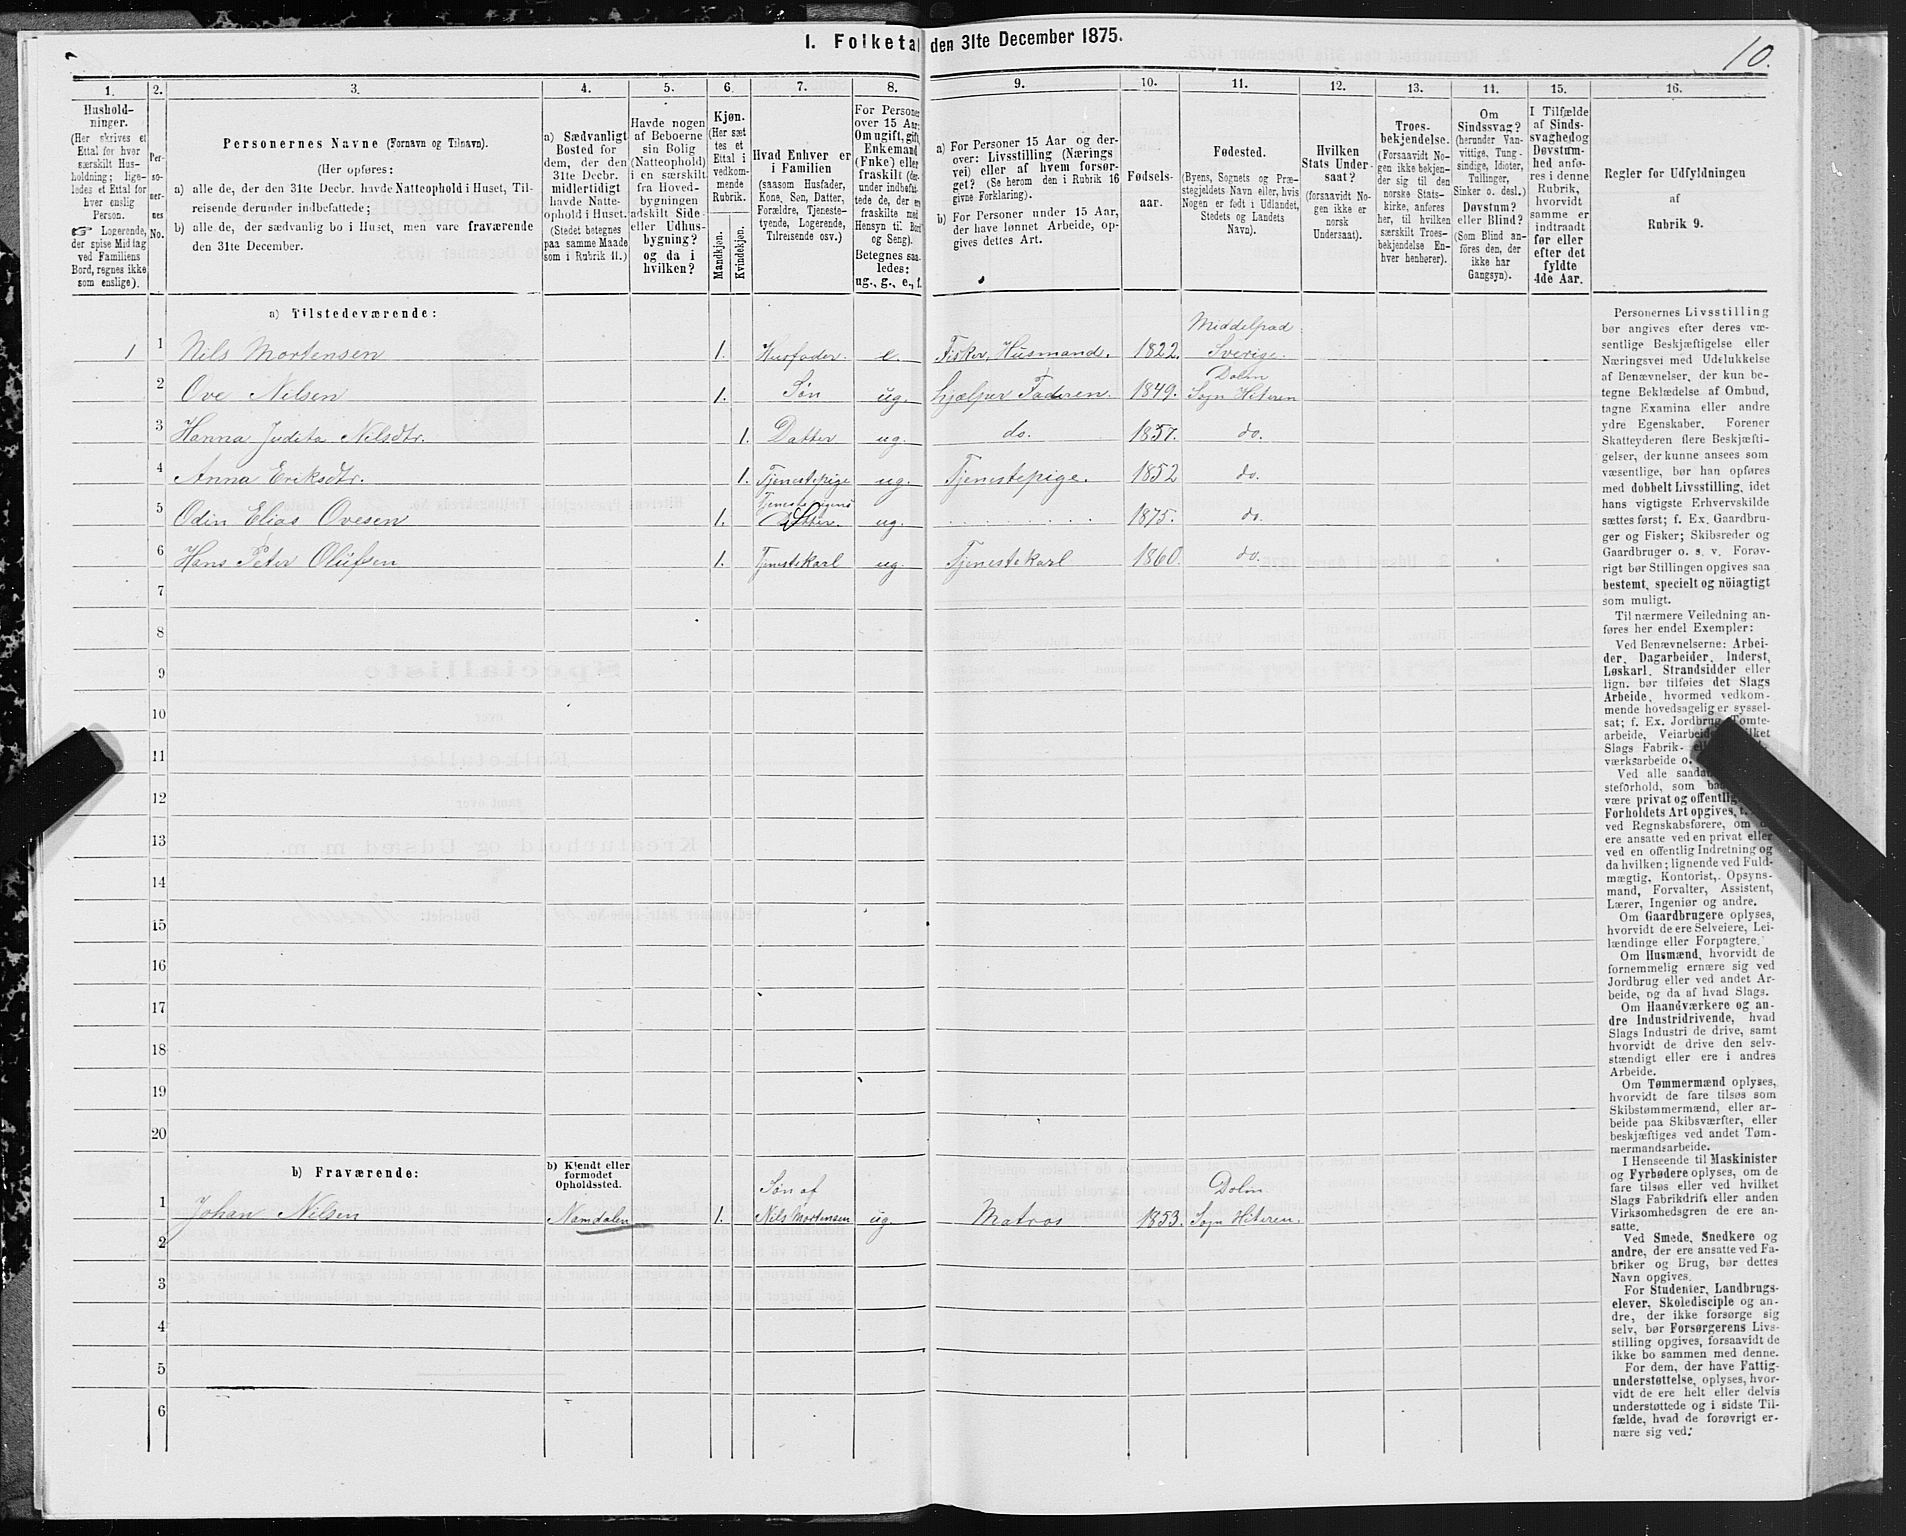 I. Folketal den 31te December 1875.
10.
1.
Hushold-
ninger.
(Her skrives et
Ettal for hver
særskilt Hus-
holdning; lige-
ledes et Ettal for
hver enslig
Person.
☞ Logerende,
der spise Middag
ved Familiens
Bord, regnes ikke
som enslige).
2.
Per-
so-
ner-
nes
No.
3.
Personernes Navne (Fornavn og Tilnavn).
(Her opføres:
a) alle de, der den 31te Decbr. havde Natteophold i Huset, Til-
reisende derunder indbefattede;
b) alle de, der sædvanlig bo i Huset, men vare fraværende
den 31te December.
4.
a) Sædvanligt
Bosted for
dem, der den
31te Decbr.
midlertidigt
havde Natte-
ophold i Huset.
(Stedet betegnes
paa samme Maade
som i Rubrik 11.)
5.
Havde nogen
af Beboerne
sin Bolig
(Natteophold)
i en særskilt
fra Hoved-
bygningen
adskilt Side-
eller Udhus-
bygning?
og da i
hvilken?
6.
Kjøn.
(Her sæt
tes et
Ettal i
vedkom-
mende
Rubrik.
Mandkjøn.
Kvindekjøn.
7.
Hvad Enhver er
i Familien
(saasom Husfader,
Kone, Søn, Datter,
Forældre, Tjeneste-
tyende, Logerende,
Tilreisende osv.)
8.
For Personer
over 15 Aar:
Om ugift, gift,
Enkemand
(Enke) eller
fraskilt (der-
under indbefat-
tede de, der ere
fraskilte med
Hensyn til Bord
og Seng).
Betegnes saa-
ledes:
ug., g., e., f.
9.
a) For Personer 15 Aar og der-
over: Livsstilling (Nærings
vei) eller af hvem forsør-
get? (Se herom den i Rubrik 16
givne Forklaring).
b) For Personer under 15 Aar,
der have lønnet Arbeide, op-
gives dettes Art.
10.
Fødsels-
aar.
11.
Fødested.
(Byens, Sognets og Præ-
stegjeldets Navn eller, hvis
Nogen er født i Udlandet,
Stedets og Landets
Navn).
12.
Hvilken
Stats Under-
saat?
(forsaavidt No-
gen ikke er
norsk
Undersaat).
13.
Troes-
bekjendelse.
(Forsaavidt No-
gen ikke bekjen-
der sig til den
norske Stats-
kirke, anføres
her, til hvilken
særskilt Troes-
bekjendelse En-
hver henhører).
14.
Om
Sindssvag?
(herunder Van-
vittige, Tung-
sindige, Idioter,
Tullinger,
Sinker o. desl.)
Døvstum?
eller Blind?
(Som Blind an-
føres den, der
ikke har
Gangsyn).
15.
I Tilfælde
af Sinds-
svaghed og
Døvstum-
hed anfø-
res i denne
Rubrik,
hvorvidt
samme er
indtraadt
før eller
efter det
fyldte
4de Aar.
16.
Regler for Udfyldningen
af
Rubrik 9.
a) Tilstedeværende:
1 1 Nils Mortensen 1. Husfader. e. Fisker, Husmand. 1822. Middelpad: Sverige.
2 Ove Nilsen 1. Søn ug. hjælper Faderen. 1849. Dolm Sogn Hiteren
3 Hanna Judita Nilsdtr. 1. Datter ug. do. 1857. do.
4 Anna Eriksdtr. 1. Tjenestepige ug. Tjenestepige. 1852 do.
5 Odin Elias Ovesen 1. ug. 1875. do.
6 Hans Peter Olufsen 1. Tjenestekarl ug. Tjenestekarl 1860. do.
7
8
9
10
11
12
13
14
15
16
17
18
19
20
b) Fraværende:
b) Kjendt eller
formodet
Opholdssted.
1 Johan Nilsen Namdalen 1. Søn af Nils Mortensen ug. Matros 1853. Dolm Sogn Hiteren.
2
3
4
5
6
Personernes Livsstilling
bør angives efter deres væ-
sentlige Beskjæftigelse eller
Næringsvei med Udelukkelse
af Benævnelser, der kun be-
tegne Beklædelse af Ombud,
tagne Examina eller andre
ydre Egenskaber. Forener
Skatteyderen flere Beskjæfti-
gelser, der kunne ansees som
væsentlige, bør han opføres
med dobbelt Livsstilling, idet
hans vigtigste Erhvervskilde
sættes først; f. Ex. Gaardbru-
ger og Fisker; Skibsreder og
Gaardbruger o. s. v. Forøv-
rigt bør Stillingen opgives saa
bestemt, specielt og nöiagtigt
som muligt.
Til nærmere Veiledning an-
føres her endel Exempler:
Ved Benævnelserne: Arbei-
der, Dagarbeider, Inderst,
Løskarl, Strandsidder eller
lign. bør tilføies det Slags
Arbeide, hvormed vedkom-
mende hovedsagelig er syssel-
sat; f. Ex. Jordbrug, Tomte-
arbeide, Veiarbeide,
Slags Fabrik-
værksarbeide o.
Ved alle
steforhold, som
være privat og offentlig
Forholdets Art opgives,
ved Regnskabsførere, om
ere ansatte ved en privat eller
ved en offentlig Indretning og
da hvilken; lignende ved Fuld-
mægtig, Kontorist, Opsyns-
mand, Forvalter, Assistent,
Lærer, Ingeniør og andre.
Om Gaardbrugere oplyses,
hvorvidt de ere Selveiere, Lei-
lændinge eller Forpagtere.
Om Husmænd, hvorvidt de
fornemmelig ernære sig ved
Jordbrug eller ved andet Ar-
beide, og da af hvad Slags.
Om Haandværkere og an-
dre Industridrivende, hvad
Slags Industri de drive, samt
hvorvidt de drive den selv-
stændigt eller ere i andres
Arbeide.
Om Tømmermænd oplyses,
hvorvidt de fare tilsøs som
Skibstømmermænd, eller ar-
beide paa Skibsværfter, eller
beskjæftiges ved andet Tøm-
mermandsarbeide.
I Henseende til Maskinister
og Fyrbødere oplyses, om de
fare tilsøs eller ved hvilket
Slags Fabrikdrift eller anden
Virksomhedsgren de ere an-
satte.
Ved Smede, Snedkere og
andre, der ere ansatte ved Fa-
briker og Brug, bør dettes
Navn opgives.
For Studenter, Landbrugs-
elever, Skoledisciple og an-
dre, der ikke forsørge sig
selv, bør Forsørgerens Livs-
stilling opgives, forsaavidt de
ikke bo sammen med denne.
For dem, der have Fattig-
understøttelse, oplyses, hvor-
vidt de ere helt eller delvis
understøttede og i sidste Til-
fælde, hvad de forøvrigt er-
nære sig ved.